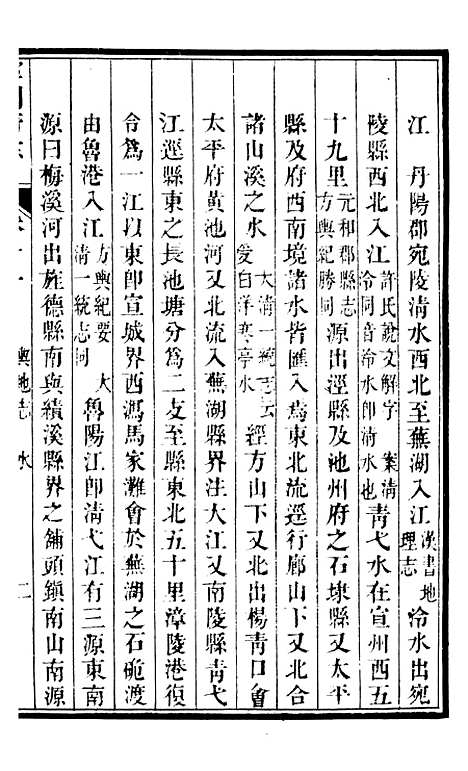 江　丹陽郡宛陵清水西北至蕪湖入江漢書地理志泠水出宛
陵縣西北入江許氏說文解字　案清泠同音泠水卽清水也青弋水在宣州西五
十九里元和郡縣志方輿紀勝同源出涇縣及池州府之石埭縣又太平
縣及府西南境諸水皆匯入焉東北流逕行廊山下又北合
諸山溪之水大清一統志云受白洋寒亭水經方山下又北出楊青口會
太平府黃池河又北流入蕪湖縣界注大江又南陵縣青弋
江逕縣東之長池塘分爲二支至縣東北五十里漳陵港復
合爲一江以東卽宣城界西馮馬家灘會於蕪湖之石硊渡
由魯港入江方輿紀要　大清一統志同魯陽江卽清弋江有三源東南
源曰梅溪河出旌德縣南與績溪縣界之舖頭鎮南山南源
輿地志　水　二